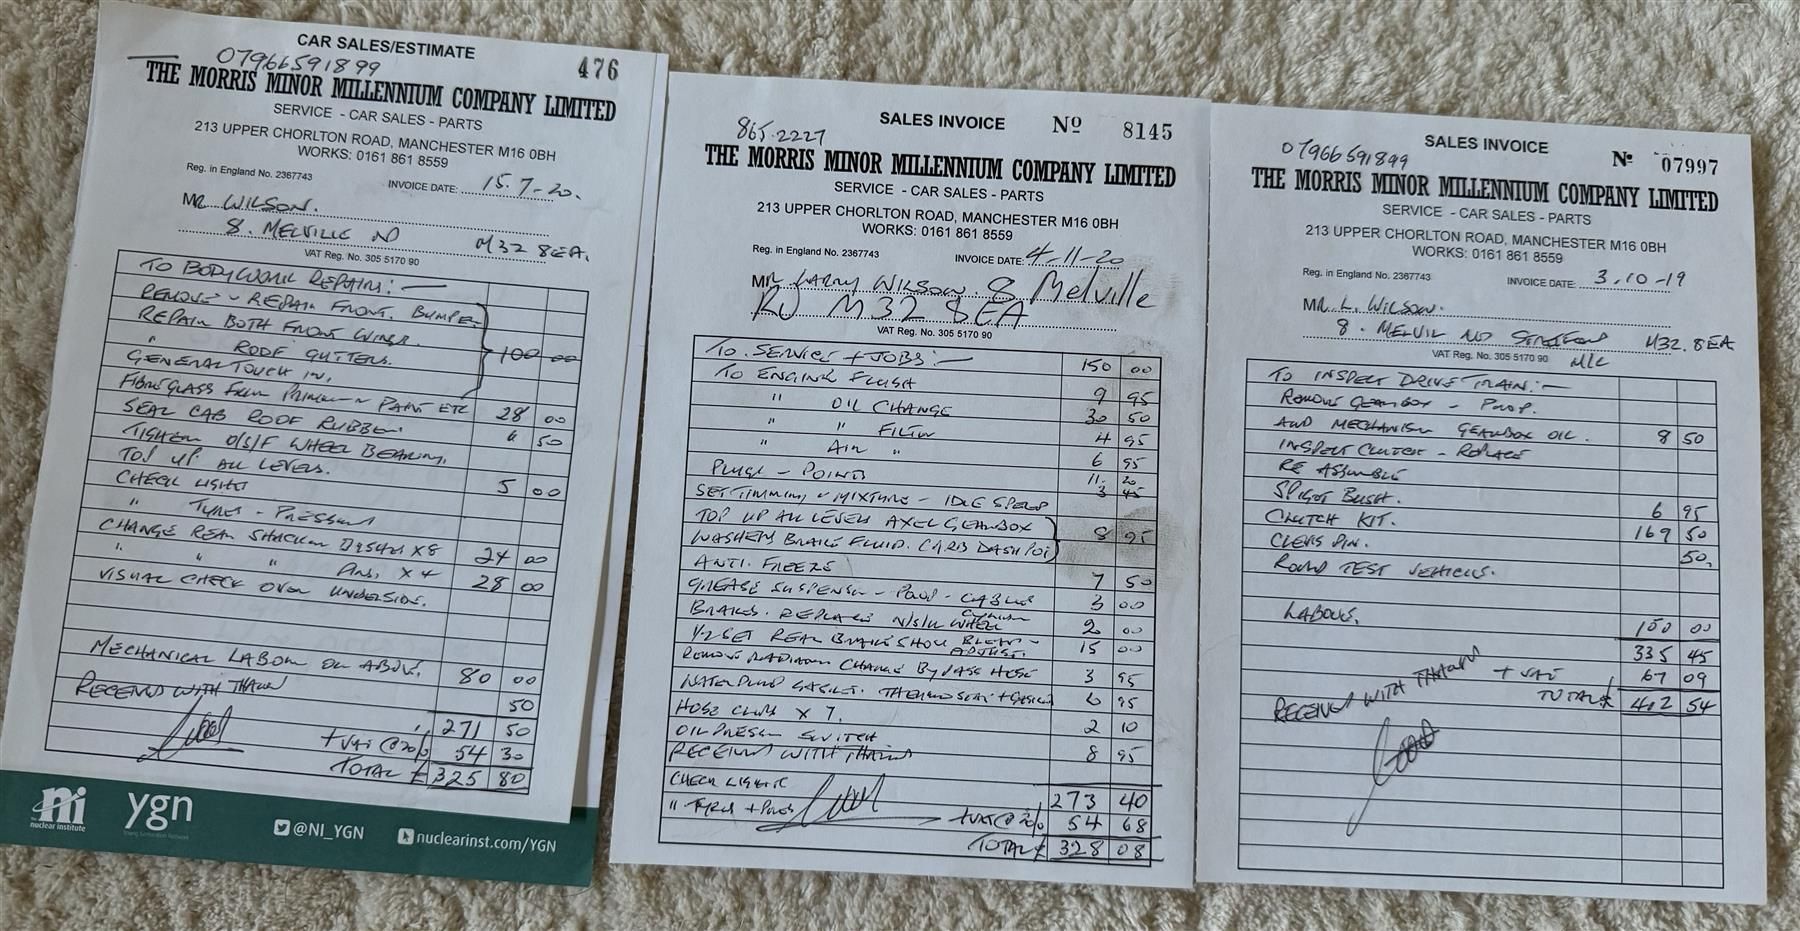 CAR SALES/ESTIMATE
07966591899
476
THE MORRIS MINOR MILLENNIUM COMPANY LIMITED
SERVICE - CAR SALES - PARTS
213 UPPER CHORLTON ROAD, MANCHESTER M16 0BH
WORKS: 0161 861 8559
Reg. in England No. 2367743
INVOICE DATE: 15.7-20.
MR WILSON.
8. MELVILLE RD M32 8EA.
VAT Reg. No. 305 5170 90
TO BODYWORK REPAIRS:-
REMOVE - REPAIR FRONT. BUMPER
REPAIR BOTH FRONT WINGS.
" ROOF GUTTERS. 100 00
GENERAL TOUCH IN,
FIBREGLASS FILLER PRIMER PAINT ETC 28 00
SEAL CAB ROOF RUBBER. 50
TIGHTEN O/S/F WHEEL BEARING.
TOP UP ALL LEVELS. 5 00
CHECK LIGHTS
" TYRES - PRESSURES
CHANGE REAR SHACKLE BUSHES X8 24 00
" " " PINS, X4 28 00
VISUAL CHECK OVER UNDERSIDE.
MECHANICAL LABOUR ON ABOVE. 80 00
RECEIVED WITH THANKS 50
271 50
+ VAT @ 20% 54 30
TOTAL £ 325 80
ni
the nuclear institute
ygn
Young Generation Network
@NI_YGN
nuclearinst.com/YGN
SALES INVOICE
Nº 8145
865.2227
THE MORRIS MINOR MILLENNIUM COMPANY LIMITED
SERVICE - CAR SALES - PARTS
213 UPPER CHORLTON ROAD, MANCHESTER M16 0BH
WORKS: 0161 861 8559
Reg. in England No. 2367743
INVOICE DATE: 4-11-20
MR LARRY WILSON. 8 Melville
RD M32 8EA
VAT Reg. No. 305 5170 90
TO. SERVICE + JOBS:- 150 00
TO ENGINE FLUSH 9 95
" OIL CHANGE 30 50
" " FILTER 4 95
" AIR " 6 95
PLUGS - POINTS 11. 20
SET TIMMING MIXTURE - IDLE SPEED 3 45
TOP UP ALL LEVELS AXEL GEARBOX
WASHERS BRAKE FLUID. CARB DASH POT 8 95
ANTI. FREEZE
GREASE SUSPENSION - PROP - CABLES 7 50
BRAKES. REPLACE N/S/R WHEEL CYLINDER 3 00
1/2 SET REAR BRAKE SHOES BLEED - ADJUST. 2 00
REMOVE RADIATOR CHANGE BYPASS HOSE 15 00
WATER PUMP GASKET. THERMOSTAT + GASKET 3 95
HOSE CLIPS X 7. 6 95
OIL PRESSURE SWITCH 2 10
RECEIVED WITH THANKS 8 95
CHECK LIGHTS
" TYRES + PRESS
273 40
+ VAT @ 20% 54 68
TOTAL £ 328 08
SALES INVOICE
07966591899
Nº 07997
THE MORRIS MINOR MILLENNIUM COMPANY LIMITED
SERVICE - CAR SALES - PARTS
213 UPPER CHORLTON ROAD, MANCHESTER M16 0BH
WORKS: 0161 861 8559
Reg. in England No. 2367743
INVOICE DATE: 3.10-19
MR. L. WILSON.
8. MELVIL RD STRETFORD M32.8EA
M/C
VAT Reg. No. 305 5170 90
TO INSPECT DRIVE TRAIN:-
REMOVE GEARBOX - PROP.
AND MECHANISM GEARBOX OIL. 8 50
INSPECT CLUTCH - REPLACE
RE ASSEMBLE
SPIGOT BUSH. 6 95
CLUTCH KIT. 169 50
CLEVIS PIN. 50.
ROAD TEST VEHICLE.
LABOUR. 150 00
335 45
+ VAT 67 09
TOTAL £ 402 54
RECEIVED WITH THANKS